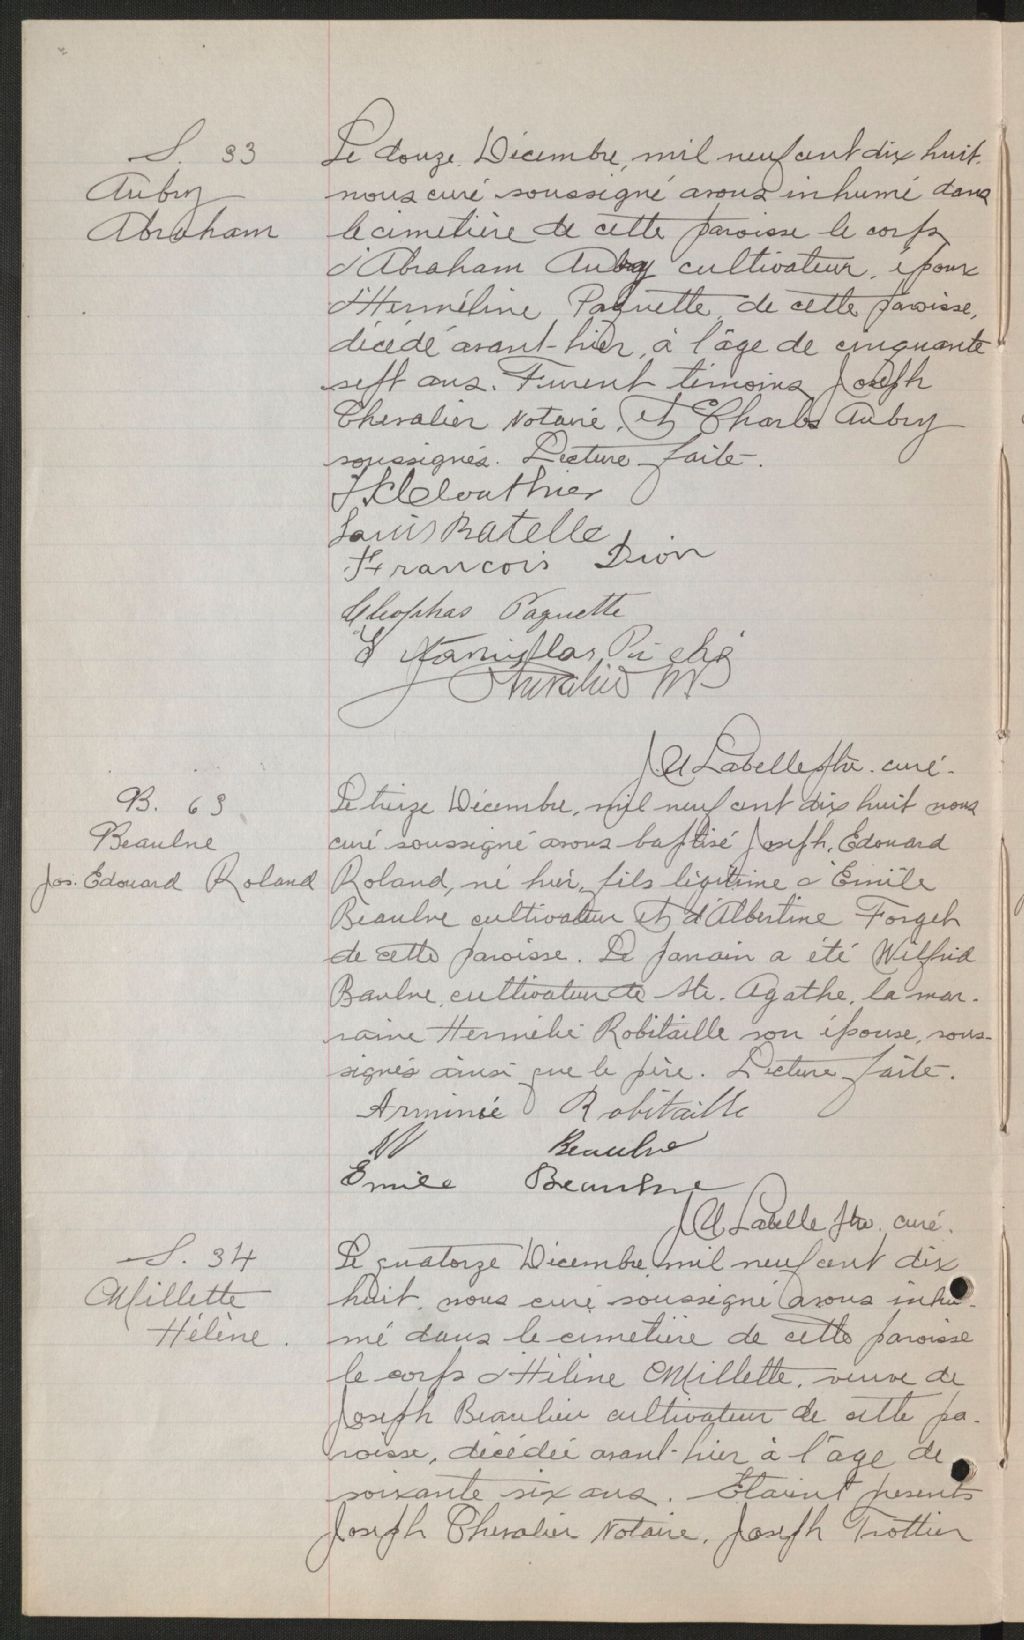 S. 33
Aubry
Abraham
Le douze Décembre, mil neuf cent dix huit.
nous curé soussigné avons inhumé dans
le cimetière de cette paroisse le corps
d'Abraham Aubry cultivateur, époux
d'Herméline Paquette, de cette paroisse,
décédé avant-hier, à l'âge de cinquante
sept ans. Furent témoins Joseph
Chevalier Notaire, et Charles Aubry
soussignés. Lecture faite.
Clouthier
Louis Ratelle
Francois Dion
Cleophas Paquette
Stanislas Piché
Chevalier NP
J A Labelle Ptre. curé.
B. 63
Beaulne
Jos. Edouard Roland
Le treize Décembre, mil neuf cent dix huit nous
curé soussigné avons baptisé Joseph, Edouard
Roland, né hier, fils légitime d'Emile
Beaulne cultivateur et d'Albertine Forget
de cette paroisse. Le parrain a été Wilfrid
Baulne, cultivateur de Ste. Agathe, la mar-
raine Herménie Robitaille son épouse, sous-
signés ainsi que le père. Lecture faite.
Arminié Robitaille
W Beaulne
Emile Beaulne
J A Labelle Ptre. curé.
S. 34
Millette
Hélène.
Le quatorze Décembre mil neuf cent dix
huit, nous curé soussigné avons inhu-
mé dans le cimetière de cette paroisse
le corps d'Hélène Millette, veuve de
Joseph Beaulieu cultivateur de cette pa-
roisse, décédée avant-hier à l'âge de
soixante six ans. Etaient presents
Joseph Chevalier Notaire, Joseph Trottier